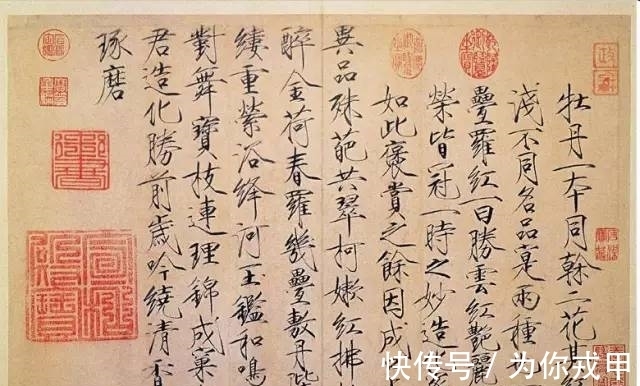 牡丹一本同幹二花其
淺不同名品寔兩種
疊羅紅一曰勝雲紅艷麗
榮皆冠一時之妙造
如此褒賞之餘因成
異品殊葩共翠柯嫩紅拂
醉金荷春羅幾疊敷丹陛
縷重縈浴絳河玉鑑和鳴
對舞寶枝連理錦成窠
君造化勝前歲吟繞清香
琢磨
快传号 / 为你戎甲